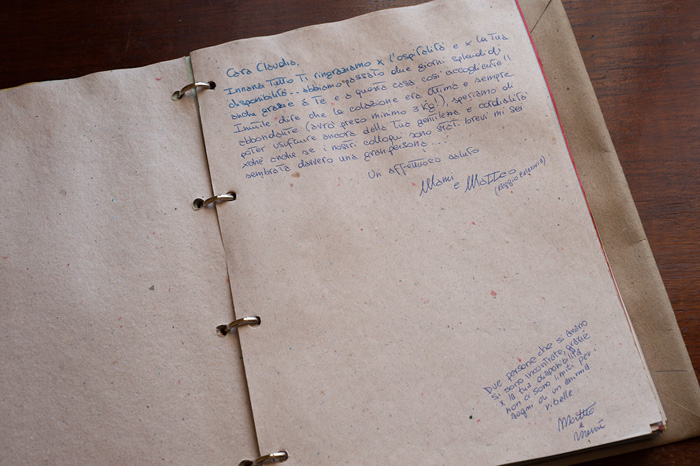 Cara Claudia,
Innanzi Tutto Ti ringraziamo x l'ospitalità e x la Tua
disponibilità... abbiamo passato due giorni splendidi
anche grazie a Te e a questa casa così accogliente!!
Inutile dire che la colazione era ottima e sempre
abbondante (avrò preso minimo 3 kg!), speriamo di
poter usufruire ancora della Tua gentilezza e cordialità
xché anche se i nostri colloqui sono stati brevi mi sei
sembrata davvero una gran persona...
Un affettuoso saluto
e Matteo
(Reggio Emilia)
Due persone che si amano
si sono incontrate, grazie
x la tua disponibilità
non ci sono limiti per i
sogni di un anima
ribelle
Matteo
e